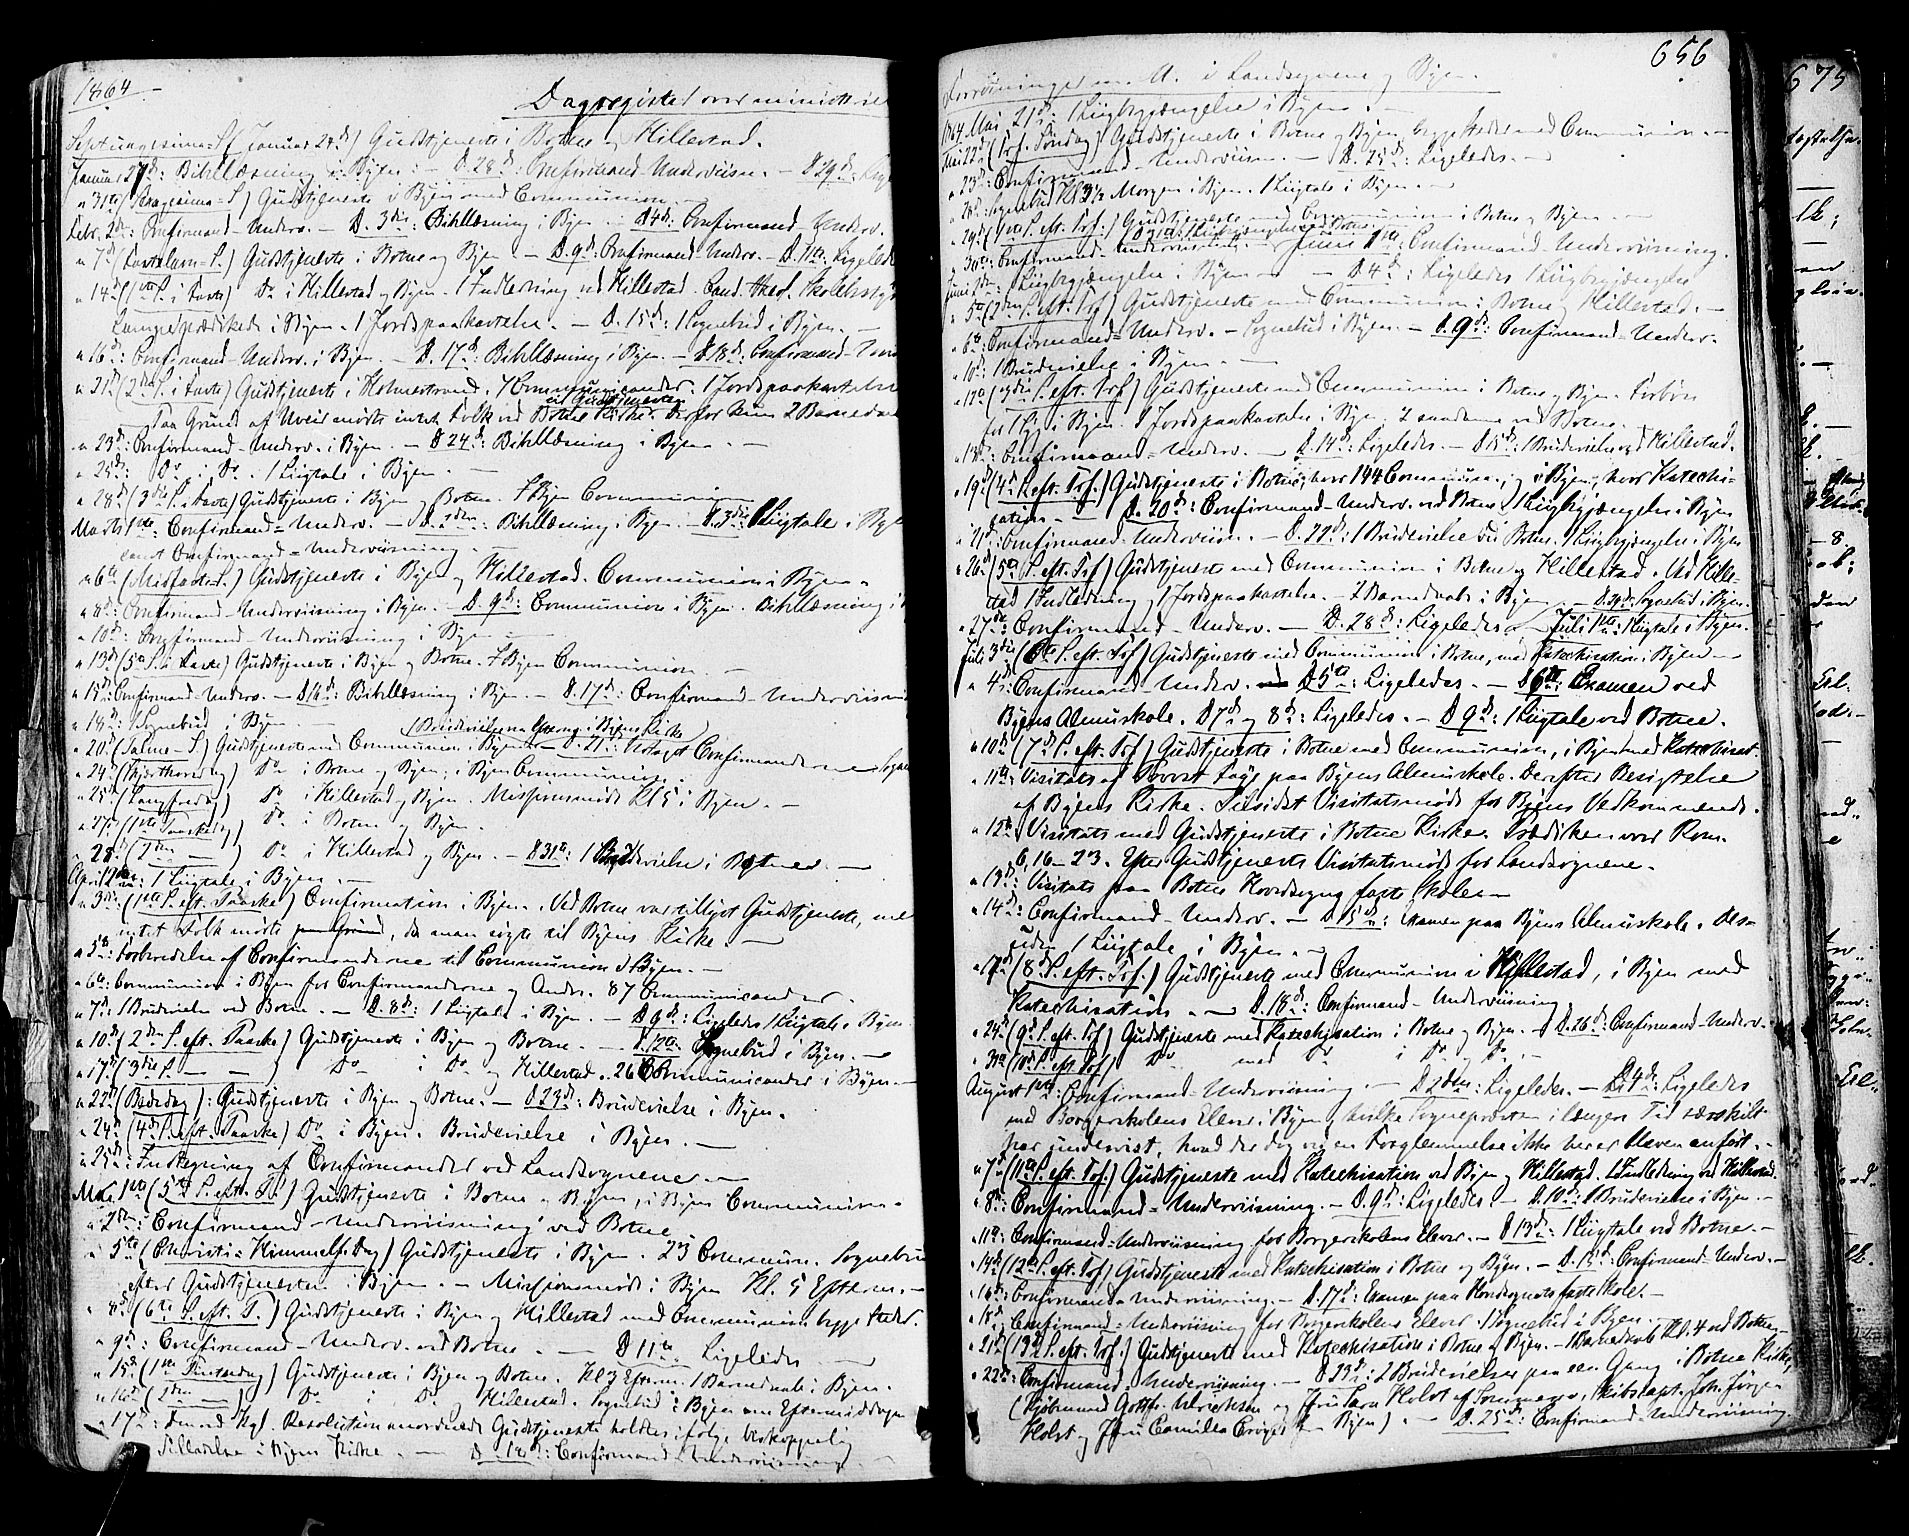 1864.
Dagregister over ministeriel
Septuagesima S. (Januar 24d) Gudstjeneste i Botne og Hillestad.
Januar 27d: Bibellæsning i Byen. — D. 28d: Confirmand-Underviisn. — D 29d:
" 31te (Sexagesima-S) Gudstjeneste i Byen med Communion.
Febr. 2d: Confirmand-Underv. — D. 3die: Bibellæsning i Byen — D 4d: Confirmand-Underv.
" 7d (Fastelavn-S.) Gudstjeneste i Botne og Byen — D. 9d: Confirmand-Underv. — D. 11te: Ligelede
" 14d (1ste S. i Faste) Do i Hillestad og Byen. 1 Indledning ved Hillestad. Cand. theol. Skolebest
Lampe prædikede i Byen. 1 Jordspaakastelse. — D. 15d: 1 Sognebud i Byen. —
" 16d: Confirmand-Underv. i Byen. — D. 17d: Bibellæsning i Byen. — D 18d: Confirmand-Und
" 21d (2den S. i Faste) Gudstjeneste i Holmestrand. 7 Communicander. 1 Jordspaakastelse
Paa Grund af Uveir mødte intet Folk ved Botne Kirke til Gudstjenesten, derfor kun 2 Barnedaab
" 23d: Confirmand-Underv. i Byen. — D 24d: Bibellæsning i Byen. —
" 25d: Do i Do. 1 Liigtale i Byen. —
" 28d (3die S. i Faste) Gudstjeneste i Byen og Botne. I Byen Communion
Marts 1ste: Confirmand-Underv. — D. 2den: Bibellæsning i Byen — D. 3die: 1 Liigtale i Byen
samt Confirmand-Underviisning. —
" 6te (Midfaste S.) Gudstjeneste i Byen og Hillestad. Communion i Byen.
" 8d: Confirmand-Underviisning i Byen. — D. 9d: Communion i Byen. Bibellæsning i
" 10d: Confirmand-Underviisning i Byen —
" 13d (5te S. i Faste) Gudstjeneste i Byen og Botne. I Byen Communion. —
" 15d: Confirmand-Underv. — D 16d: Bibellæsning i Byen. — D. 17d: Confirmand-Underviisni
" 18d: 1 Sognebud i Byen. —
" 20d (Palme-S) Gudstjeneste med Communion i Byen — D. 21: Confirmanderne
" 24d (Skjærthorsdag) Do i Botne og Byen; i Byen Communion.
" 25d (Langfredag) Do i Hillestad og Byen. Missionsmøde Kl 5 i Byen. —
" 27d (1ste Paaskedag) Do i Botne og Byen.
" 28d (2den — ) Do i Hillestad og Byen. — D 31te: 1 Brudevielse i Botne. —
April 1ste: 1 Liigtale i Byen. —
" 3die (1ste S. eft. Paaske) Confirmation i Byen. Ved Botne var tillyst Gudstjeneste, men
intet Folk mødte, da man søgte til Byens Kirke. —
" 5te: Forberedelse af Confirmanderne til Communion i Byen. —
" 6te: Communion i Byen for Confirmanderne og Andre. 87 Communicander.
" 7d: 1 Brudevielse ved Botne. — D. 8d: 1 Liigtale i Byen. — D 9d: Ligeledes 1 Liigtale i Byen.
" 10d (2den S. eft. Paaske) Gudstjeneste i Byen og Botne. — D. 12te: Sognebud i Byen. —
" 17d (3die S. — — ) Do i Do og Hillestad. 26 Communicander i Byen. —
" 22d (Bededag): Gudstjeneste i Byen og Botne. — D 23d: Brudevielse i Byen.
" 24d (4d S. eft. Paaske) Do i Byen. Brudevielse i Byen. —
" 25d: Indtegning af Confirmander ved Landsognene —
Mai 1ste (5te S. eft. P.) Gudstjeneste i Botne og Byen, i Byen Communion.
" 2den: Confirmand-Underviisning ved Botne
" 5te (Christi-Himmelf. Dag) Gudstjeneste i Byen. 23 Commun. Sognebud
efter Gudstjenesten i Byen. — Missionsmøde i Byen Kl. 5 Efterm. —
" 8d (6te S. eft. P.) Gudstjeneste i Byen og Hillestad med Communion begge Steder.
" 9d: Confirmand-Underv. ved Botne — D 11te Ligeledes —
" 15d (1ste Pintsedag) Gudstjeneste i Byen og Botne. Kl 3 Efterm. 1 Barnedaab i Byen.
" 16d (2den — ) Do i Do Hillestad. Sognebud i Byen om Eftermiddagen
" 17d: Den ved Kgl. Resolution anordnede Gudstjeneste holdtes ifølge biskoppelig
Tilladelse i Byens Kirke. — D. 18d: Confirmand-Underviisning. —
656
Forretninger m. M. i Landsognene og Byen.
1864 Mai 21d: 1 Liigbegjængelse i Byen. —
Mai 22d (Tref. Søndag) Gudstjeneste i Botne og Byen, begge Steder med Communion. —
" 23d: Confirmand-Underviisn. — D. 25d: Ligeledes. —
" 26d: Sognebud Kl 3½ Morgen i Byen. 1 Liigtale i Byen. —
" 29d (1ste S. eft. Tref.) Gudstjeneste med Communion i Botne og Byen. —
" 30te: Confirmand-Underviisn. — Juni 1ste: Confirmand-Underviisning.
Juni 2den: 1 Liigbegjængelse i Byen — D 4d: Ligeledes 1 Liigbegjængelse
" 5te (2den S. eft. Tref.) Gudstjeneste med Communion i Botne og Hillestad. —
" 6te: Confirmand-Underv. — Sognebud i Byen. — D. 9d: Confirmand-Underv.
" 10d: 1 Brudevielse i Byen. —
" 12te (3die S. eft. Tref.) Gudstjeneste med Communion i Botne og Byen. Forbøn
for 1 Syg i Byen. 1 Jordspaakastelse i Byen. 2 saadanne ved Botne. —
" 13d: Confirmand-Underv. — D. 14d: Ligeledes. — D 15d: 1 Brudevielse ved Hillestad.
" 19d (4d S. eft. Tref.) Gudstjeneste i Botne, hvor 144 Commun., og i Byen, hvor Katechi-
sation. — D. 20d: Confirmand-Underv. ved Botne. 1 Liigbegjængelse i Byen
" 21d: Confirmand-Underviisn. — D. 22d: 1 Brudevielse ved Botne. 1 Liigbegjængelse i Byen
" 26d (5te S. eft. Tref) Gudstjeneste med Communion i Botne og Hillestad. Ved Hille-
stad 1 Indledning og 1 Jordspaakastelse. — 2 Barnedaab i Byen. — D. 29d: Sognebud i Byen.
" 27de: Confirmand-Underv. — D. 28d: Ligeledes. — Juli 1ste: 1 Liigtale i Byen.
Juli 3die (6te S. eft. Tref) Gudstjeneste med Communion i Botne, med Katechisation i Byen —
" 4d: Confirmand-Underv. D 5te: Ligeledes. — D 6te: Examen ved
Byens Almuskole. D 7d og 8d: Ligeledes. — D 9d: 1 Liigtale ved Botne.
" 10d (7d S. eft. Tref) Gudstjeneste i Botne med Communion, i Byen med Katechisat.
" 11te: Visitats af Provst Lage paa Byens Almuskole. Derefter Besigtelse
af Byens Kirke. Tilsidst Visitatsmøde for Byens Vedkommende.
" 12te: Visitats med Gudstjeneste i Botne Kirke. Prædiken over Rom.
6, 16-23. Efter Gudstjenesten Visitatsmøde for Landsognene.
" 13d: Visitats paa Botne Hovedsogns faste Skole —
" 14d: Confirmand-Underv. — D. 15d: Examen paa Byens Almuskole. Des-
uden 1 Liigtale i Byen. —
" 17d (8d S. eft. Tref.) Gudstjeneste med Communion i Hillestad, i Byen med
Katechisation. — D. 18d: Confirmand-Underviisning
" 24d (9d S. eft. Tref) Gudstjeneste med Katechisation i Botne og Byen. — D. 26d: Confirmand-Underv.
" 31te (10d S. eft. Tref) Do med Do i Do og Do. —
August 1ste: Confirmand-Underviisning. — D 2den: Ligeledes. — D. 4d: Ligeledes
med Borgerskolens Elever i Byen, hvilke Sognepræsten i længere Tid særskilt
har undervist, hvad der dog ved en Forglemmelse ikke herer bleven anført. —
" 7d (11te S. eft. Tref.) Gudstjeneste med Katechisation ved Byen og Hillestad. 1 Indledning ved Hillestad.
" 8d: Confirmand-Underviisning. — D. 9d: Ligeledes — D. 10d: 1 Brudevielse i Byen. —
" 11te: Confirmand-Underviisning for Borgerskolens Elever. — D 13d: 1 Liigtale ved Botne. —
" 14d (12te S. eft. Tref) Gudstjeneste med Katechisation i Botne og Byen. — D. 15d: Confirmand-Underv. —
" 16d: Confirmand-Underviisning. — D. 17d: Examen paa Hovedsognets faste Skole. —
" 18d: Confirmand-Underviisning for Borgerskolens Elever. 1 Sognebud i Byen. —
" 21d (13d S. eft. Tref.) Gudstjeneste med Katechisation i Botne og Byen. — 1 Barnedaab Kl. 4 ved Botne. —
" 22d: Confirmand-Underviisning. — D 23d: 2 Brudevielser paa een Gang i Botne Kirke,
(Kjøbmand Gottfr. Ulrichsen og Frk Sara Holst af, Skibscapt. Joh. Jørgen
Holst og Frk Camilla Croger fra Byen). — D. 25d: Confirmand-Underviisning.
675